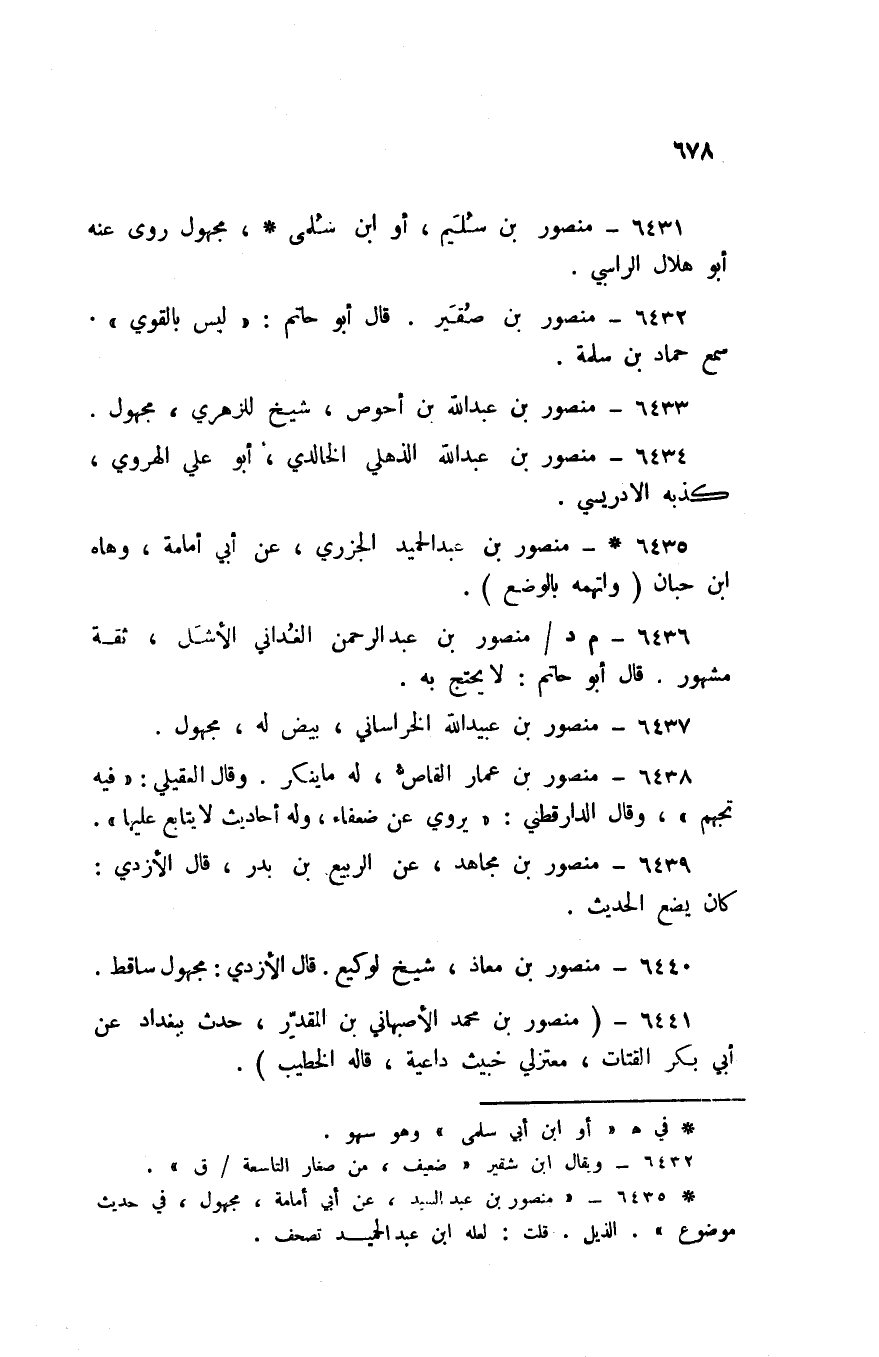 ٦٧٨
٦٤٣١ – منصور بن سُلَيم ، أو ابن سُلمى * ، مجهول روى عنه
أبو هلال الراسبي .
٦٤٣٢ – منصور بن صُقَير . قال أبو حاتم : « ليس بالقوي » .
سمع حماد بن سلمة .
٦٤٣٣ – منصور بن عبدالله بن أحوص ، شيخ للزهري ، مجهول .
٦٤٣٤ – منصور بن عبدالله الذهلي الخالدي ، أبو علي الهروي ،
كذبه الادريسي .
٦٤٣٥ * – منصور بن عبدالحميد الجزري ، عن أبي أمامة ، وهاه
ابن حبان ( واتهمه بالوضع ) .
٦٤٣٦ – م د / منصور بن عبدالرحمن الغُداني الأشَل ، ثقة
مشهور . قال أبو حاتم : لا يحتج به .
٦٤٣٧ – منصور بن عبيدالله الخراساني ، بيض له ، مجهول .
٦٤٣٨ – منصور بن عمار القاص ، له ماينكر . وقال العقيلي : « فيه
تجهم » ، وقال الدارقطني : « يروي عن ضعفاء ، وله أحاديث لايتابع عليها » .
٦٤٣٩ – منصور بن مجاهد ، عن الربيع بن بدر ، قال الأزدي :
كان يضع الحديث .
٦٤٤٠ – منصور بن معاذ ، شيخ لوكيع . قال الأزدي : مجهول ساقط .
٦٤٤١ – ( منصور بن محمد الأصبهاني بن المقدِّر ، حدث ببغداد عن
أبي بكر القتات ، معتزلي خبيث داعية ، قاله الخطيب ) .
* في ه « أو ابن أبي سلمى » وهو سهو .
٦٤٣٢ – ويقال ابن شقير « ضعيف ، من صغار التاسعة / ق » .
* ٦٤٣٥ – « منصور بن عبد السيد ، عن أبي أمامة ، مجهول ، في حديث
موضوع » . الذيل . قلت : لعله ابن عبدالحميد تصحف .